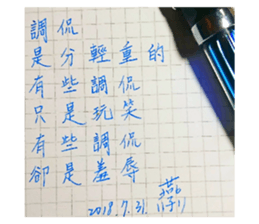 調侃
是分輕重的
有些調侃
只是玩笑
有些調侃
卻是羞辱
燕
2018.7.31.